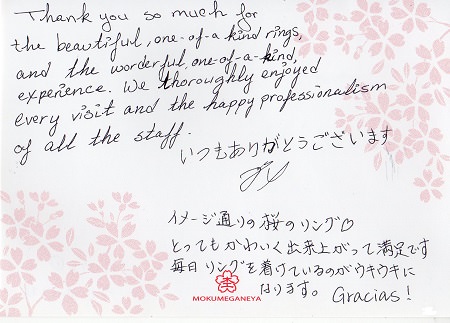 Thank you so much for
the beautiful, one-of-a kind rings,
and the wonderful, one-of-a-kind,
experience. We thoroughly enjoyed
every visit and the happy professionalism
of all the staff.
いつもありがとうございます
イメージ通りの桜のリング♡
とってもかわいく出来上がって満足です
毎日リングを着けているのがウキウキに
なります。 Gracias!
MOKUMEGANEYA